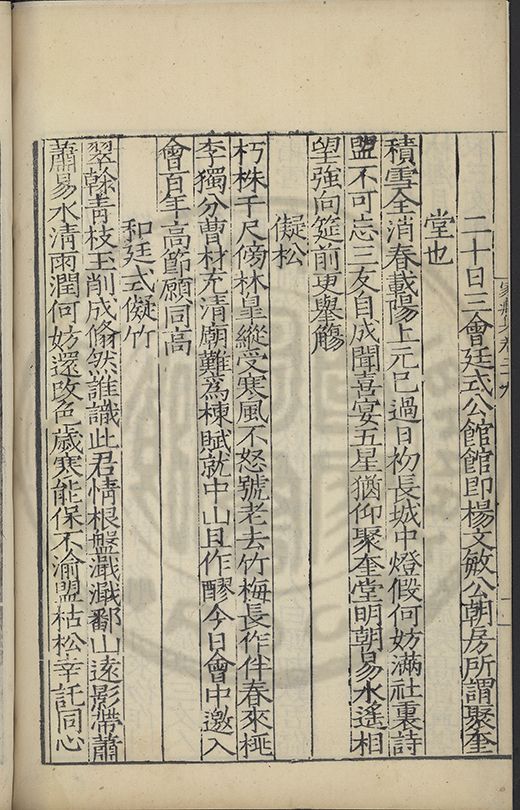 二十日三會廷式公館館即楊文敏公朝房所謂聚奎
堂也
積雪全消春載陽上元已過日初長城中燈假何妨滿社裏詩
盟不可忘三友自成聞喜宴五星猶仰聚奎堂明朝易水遙相
望強向筵前更舉觴
儗松
朽株千尺傍林皇縱受寒風不怒號老去竹梅長作伴春來桃
李獨分曹材充清廟難為棟賦就中山且作醪今日會中邀入
會百年高節願同高
和廷式儗竹
翠榦青枝玉削成翛然誰識此君情根盤瀐瀐鄱山遠影帶蕭
蕭易水清雨潤何妨還改色歲寒能保不渝盟枯松幸託同心